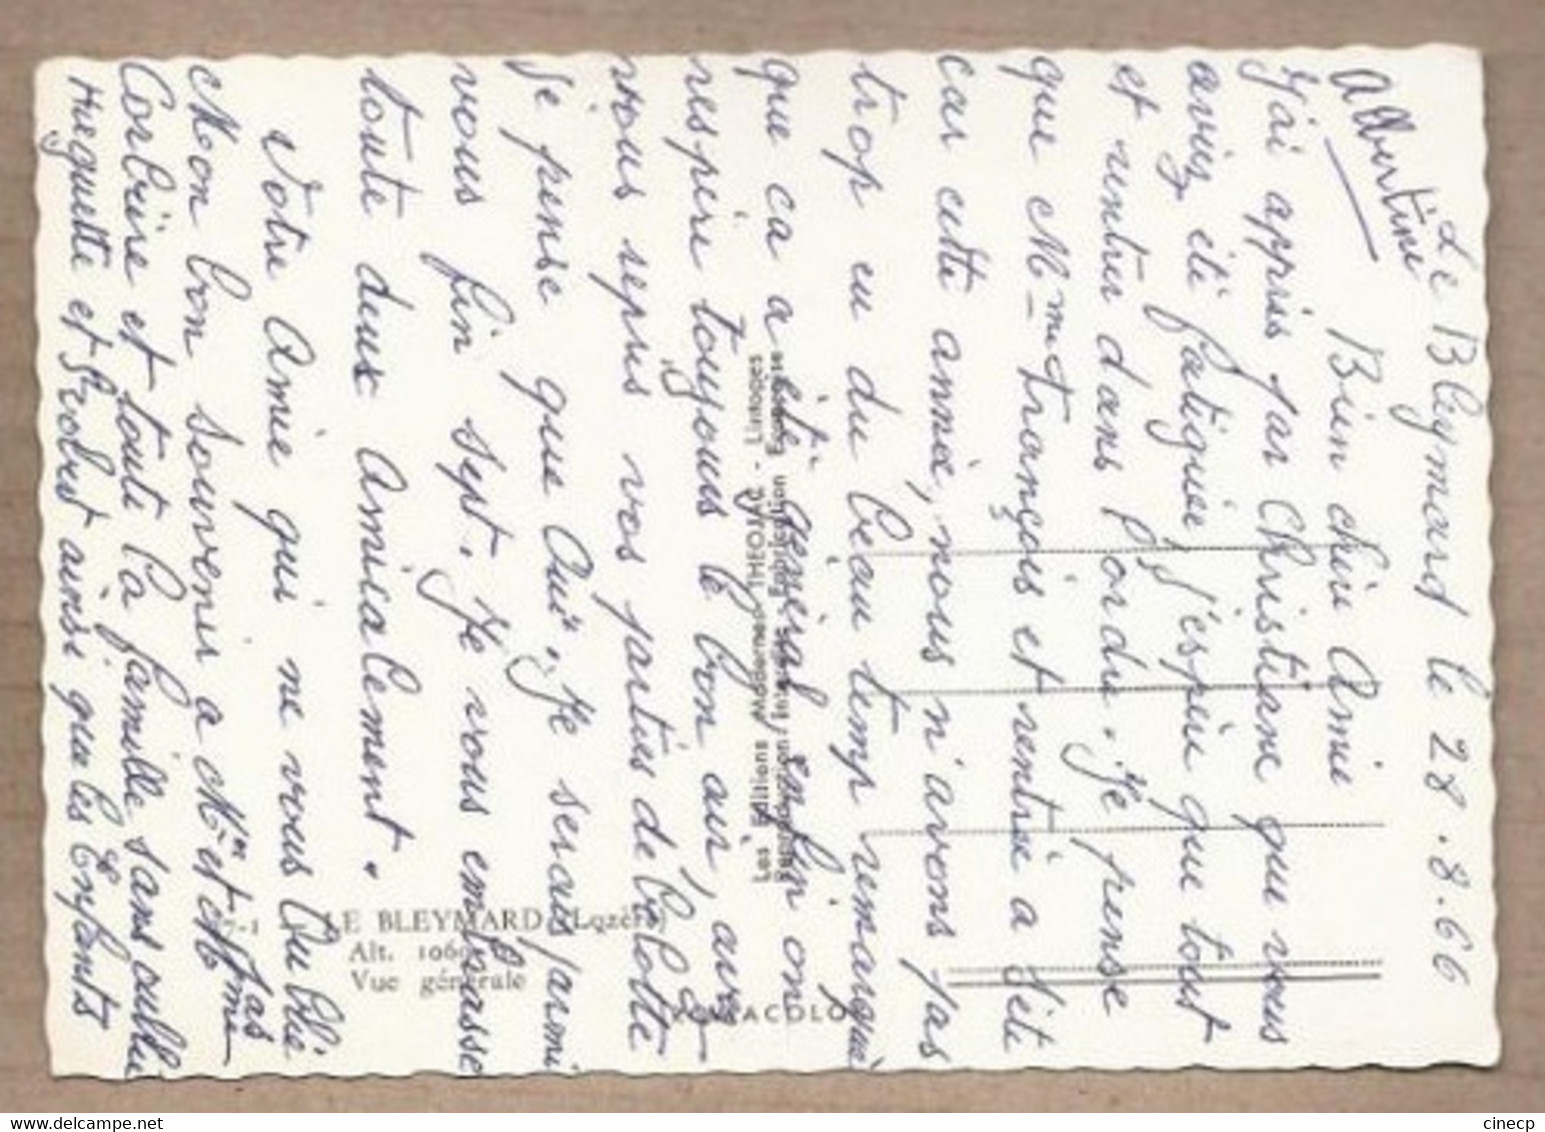 Le Bleymard le 28.8.66
Albertine
Bien chère Amie
J'ai appris par Christiane que vous
aviez été fatiguée, j'espère que tout
et rentrer dans l'ordre. Je pense
que Mme François et rentrée à Sète
car cette année, nous n'avons pas
trop eu du beau temp remarqué
que ca a été général enfin on
respire toujours le bon air, avez
vous repris vos parties de belotte
Je pense que Oui". Je serais parmi
vous fin sept. Je vous embrasse
toute deux Amicalement.
Votre Amie qui ne vous Oublie pas
Mon bon souvenir a Mr et Mme
Corbière et toute la famille sans oublier
Huguette et ainsi que les Enfants
7-1 LE BLEYMARD (Lozère)
Alt. 1069
Vue générale
Les Editions Modernes "THEOJAC" - Limoges
Reproduction Interdite Fabrication Française